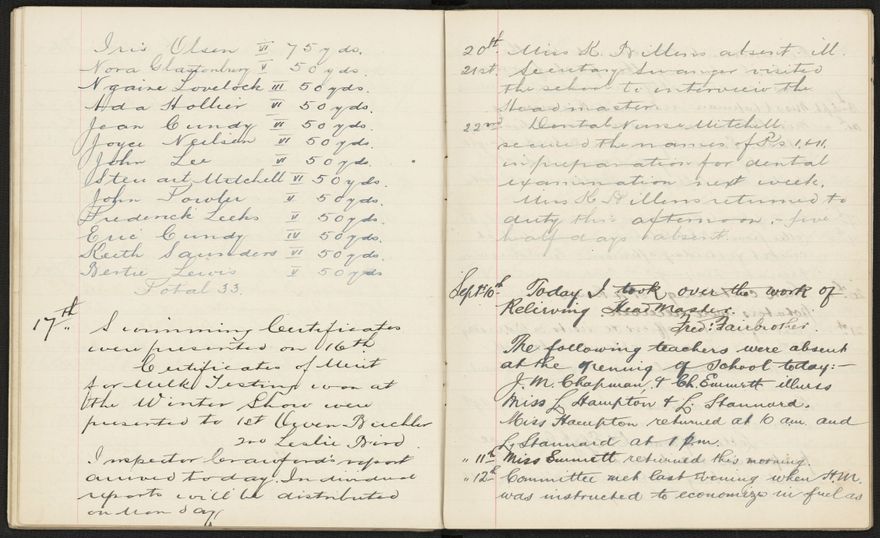 Iris Olsen VI 75 yds.
Nora Glastonbury V 50 yds.
Ngaire Lovelock III 50 yds.
Ada Hollier VI 50 yds.
Jean Cundy VI 50 yds.
Joyce Neilsen VI 50 yds.
John Lee VI 50 yds.
Stewart Mitchell VI 50 yds.
John Fowler V 50 yds.
Frederick Leeks V 50 yds.
Eric Cundy IV 50 yds.
Keith Saunders VI 50 yds.
Bertie Lewis V 50 yds
Total 33.
17th. Swimming Certificates
were presented on 16th
Certificates of Merit
for Milk Testing won at
the Winter Show were
presented to 1st Buchler
2nd Leslie Bird
Inspector Crawford's report
arrived today. Individual
reports will be distributed
on Monday
20th Miss K. Hillens absent ill.
21st. Secretary Swanger visited
the school to interview the
Headmaster.
22nd Dental Nurse Mitchell
secured the names of P's I, II.
in preparation for dental
examination next week.
Miss K Hillens returned to
duty this afternoon :- five
half days absent.
Sept. 10th Today I took over the work of
Relieving Head Master.
Fred: Fairbrother.
The following teachers were absent
at the opening of School today:-
J. M. Chapman, & Ch. Emmett illness
Miss L Hampton & L. Stannard.
Miss Hampton returned at 10 am. and
L. Stannard at 1 p.m.
" 11th Miss Emmett returned this morning.
" 12th Committee met last evening when H.M.
was instructed to economize in fuel as